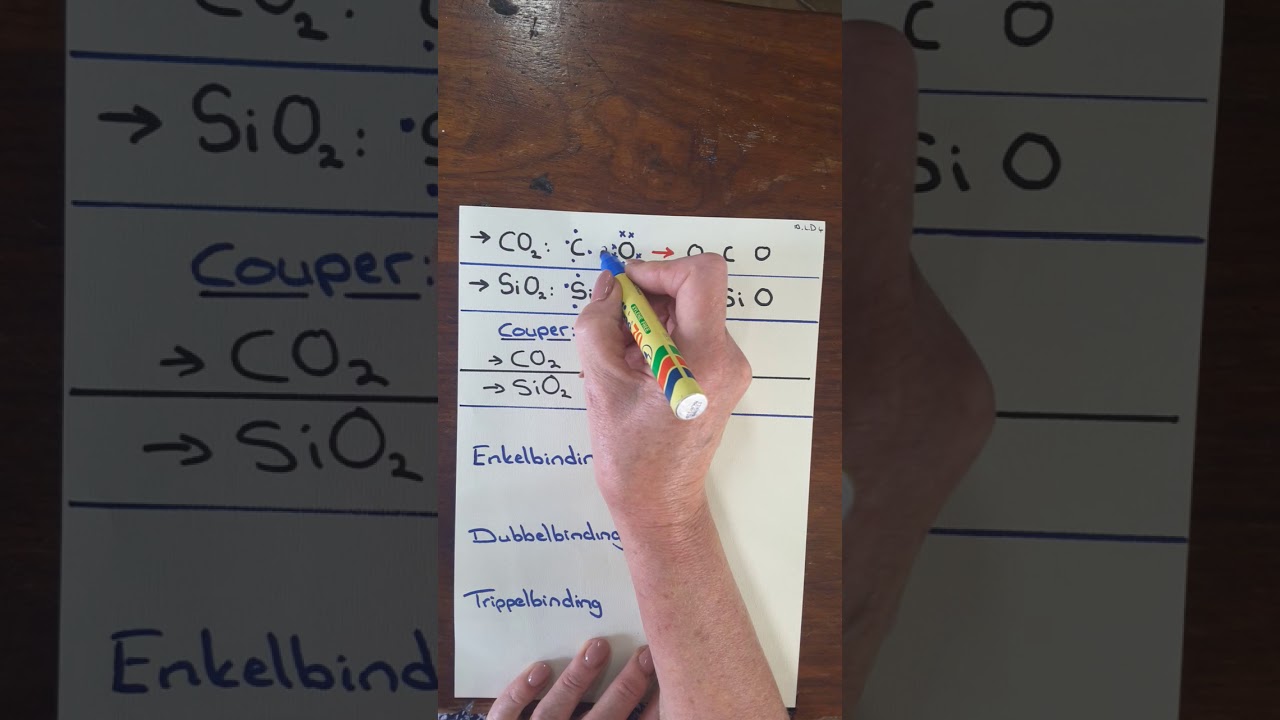 → CO₂: C O → O C O
→ SiO₂: Si Si O
Couper:
→ CO₂
→ SiO₂
Enkelbindin
Dubbelbinding
Trippelbinding